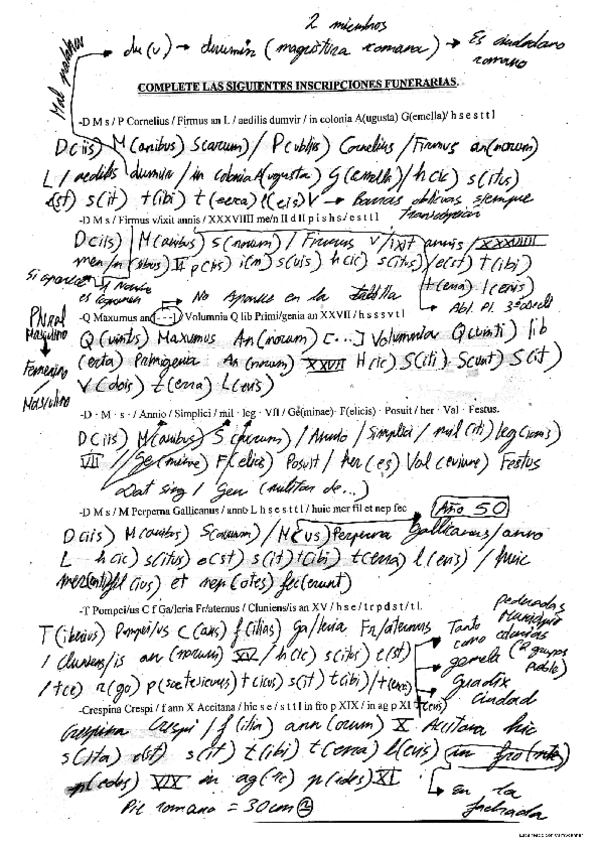 2 miembros
Mal palabra
du(v) → dunumin (magistura romana) → Es ciudadano
romano
COMPLETE LAS SIGUIENTES INSCRIPCIONES FUNERARIAS.
-D M s / P Cornelius / Firmus an L / aedilis dumvir / in colonia A(ugusta) G(emella)/ h s e s t t l
D(iis) M(anibus) S(acrum) / P(ublijs) Cornelius / Firmus an(norum)
L / aedilis dumuin / in colonia A(ugusta) G(emella) / h(ic) s(itus)
(st) s(it) t(ibi) t(erra) l(eis) V → Barras oblicuas siempre
Transcriben
-D M s / Firmus v/ixit annis / XXXVIIII me/n II d II p i s h s/ e s t t l
D(iis) / M(anibus) s(acrum) / Firmus v/ixit annis / XXXVIIII
men/n(sibus) II p(ius) i(n) s(uis) h(ic) s(itus)/ e(st) t(ibi)
t(erra) l(evis)
Si aparece
→ No Aparece en la tablilla
→ Abl. Pl. 3ª decl
-Q Maxumus an[---]/ Volumnia Q lib Primi/genia an XXVII / h s s s v t l
Plural
Masculino
Femenino
/
Masculino
Q(uintus) Maxumus An(norum) [---] Volumnia Q(uinti) lib
(erta) Primigenia An(norum) XXVII H(ic) S(iti) S(unt) S(it)
V(obis) t(erra) L(evis)
-D · M · s · / Annio / Simplici / mil · leg · VII / Ge(minae)· F(elicis) · Posuit / her · Val · Festus.
D(iis) M(anibus) S(acrum) / Annio / Simplici / mil(iti) leg(ionis)
VII // Ge(minae) F(elicis) Posuit / her(es) Val(erius) Festus
Dat sing / Gen (militar de...)
-D M s / M Perperna Gallicanus / anno L h s e s t t l / huic mer fil et nep fec
Año 50
D(iis) M(anibus) S(acrum) / M(us) Perperna Gallicanus/anno
L h(ic) s(itus) e(st) s(it) t(ibi) t(erra) l(evis) / huic
mer(enti) fil(ius) et nep(otes) fec(erunt)
-T Pompei/us C f Ga/leria Fr/aternus / Cluniens/is an XV / h s e / t r p d s t / t l.
T(iberius) Pompei/us C(aius) f(ilius) Ga/leria Fr/aternus
/ Cluniens/is an(norum) XV / h(ic) s(itus) e(st)
/ t(e) r(ogo) p(raeteriens) t(icus) s(it) t(ibi) / t(erra)
l(evis)
Tanto
como colonias
gemela (2 grupos
Guadix
ciudad
-Crespina Crespi / f ann X Accitana / hic s e / s t t l in fro p XIX / in ag p XI
Crespina Crespi / f(ilia) ann(orum) X Accitana hic
s(ita) e(st) s(it) t(ibi) t(erra) l(evis) in fro(nte)
p(edes) VIX in ag(ro) p(edes) XI
→ en la
fachada
Pie romano = 30 cm